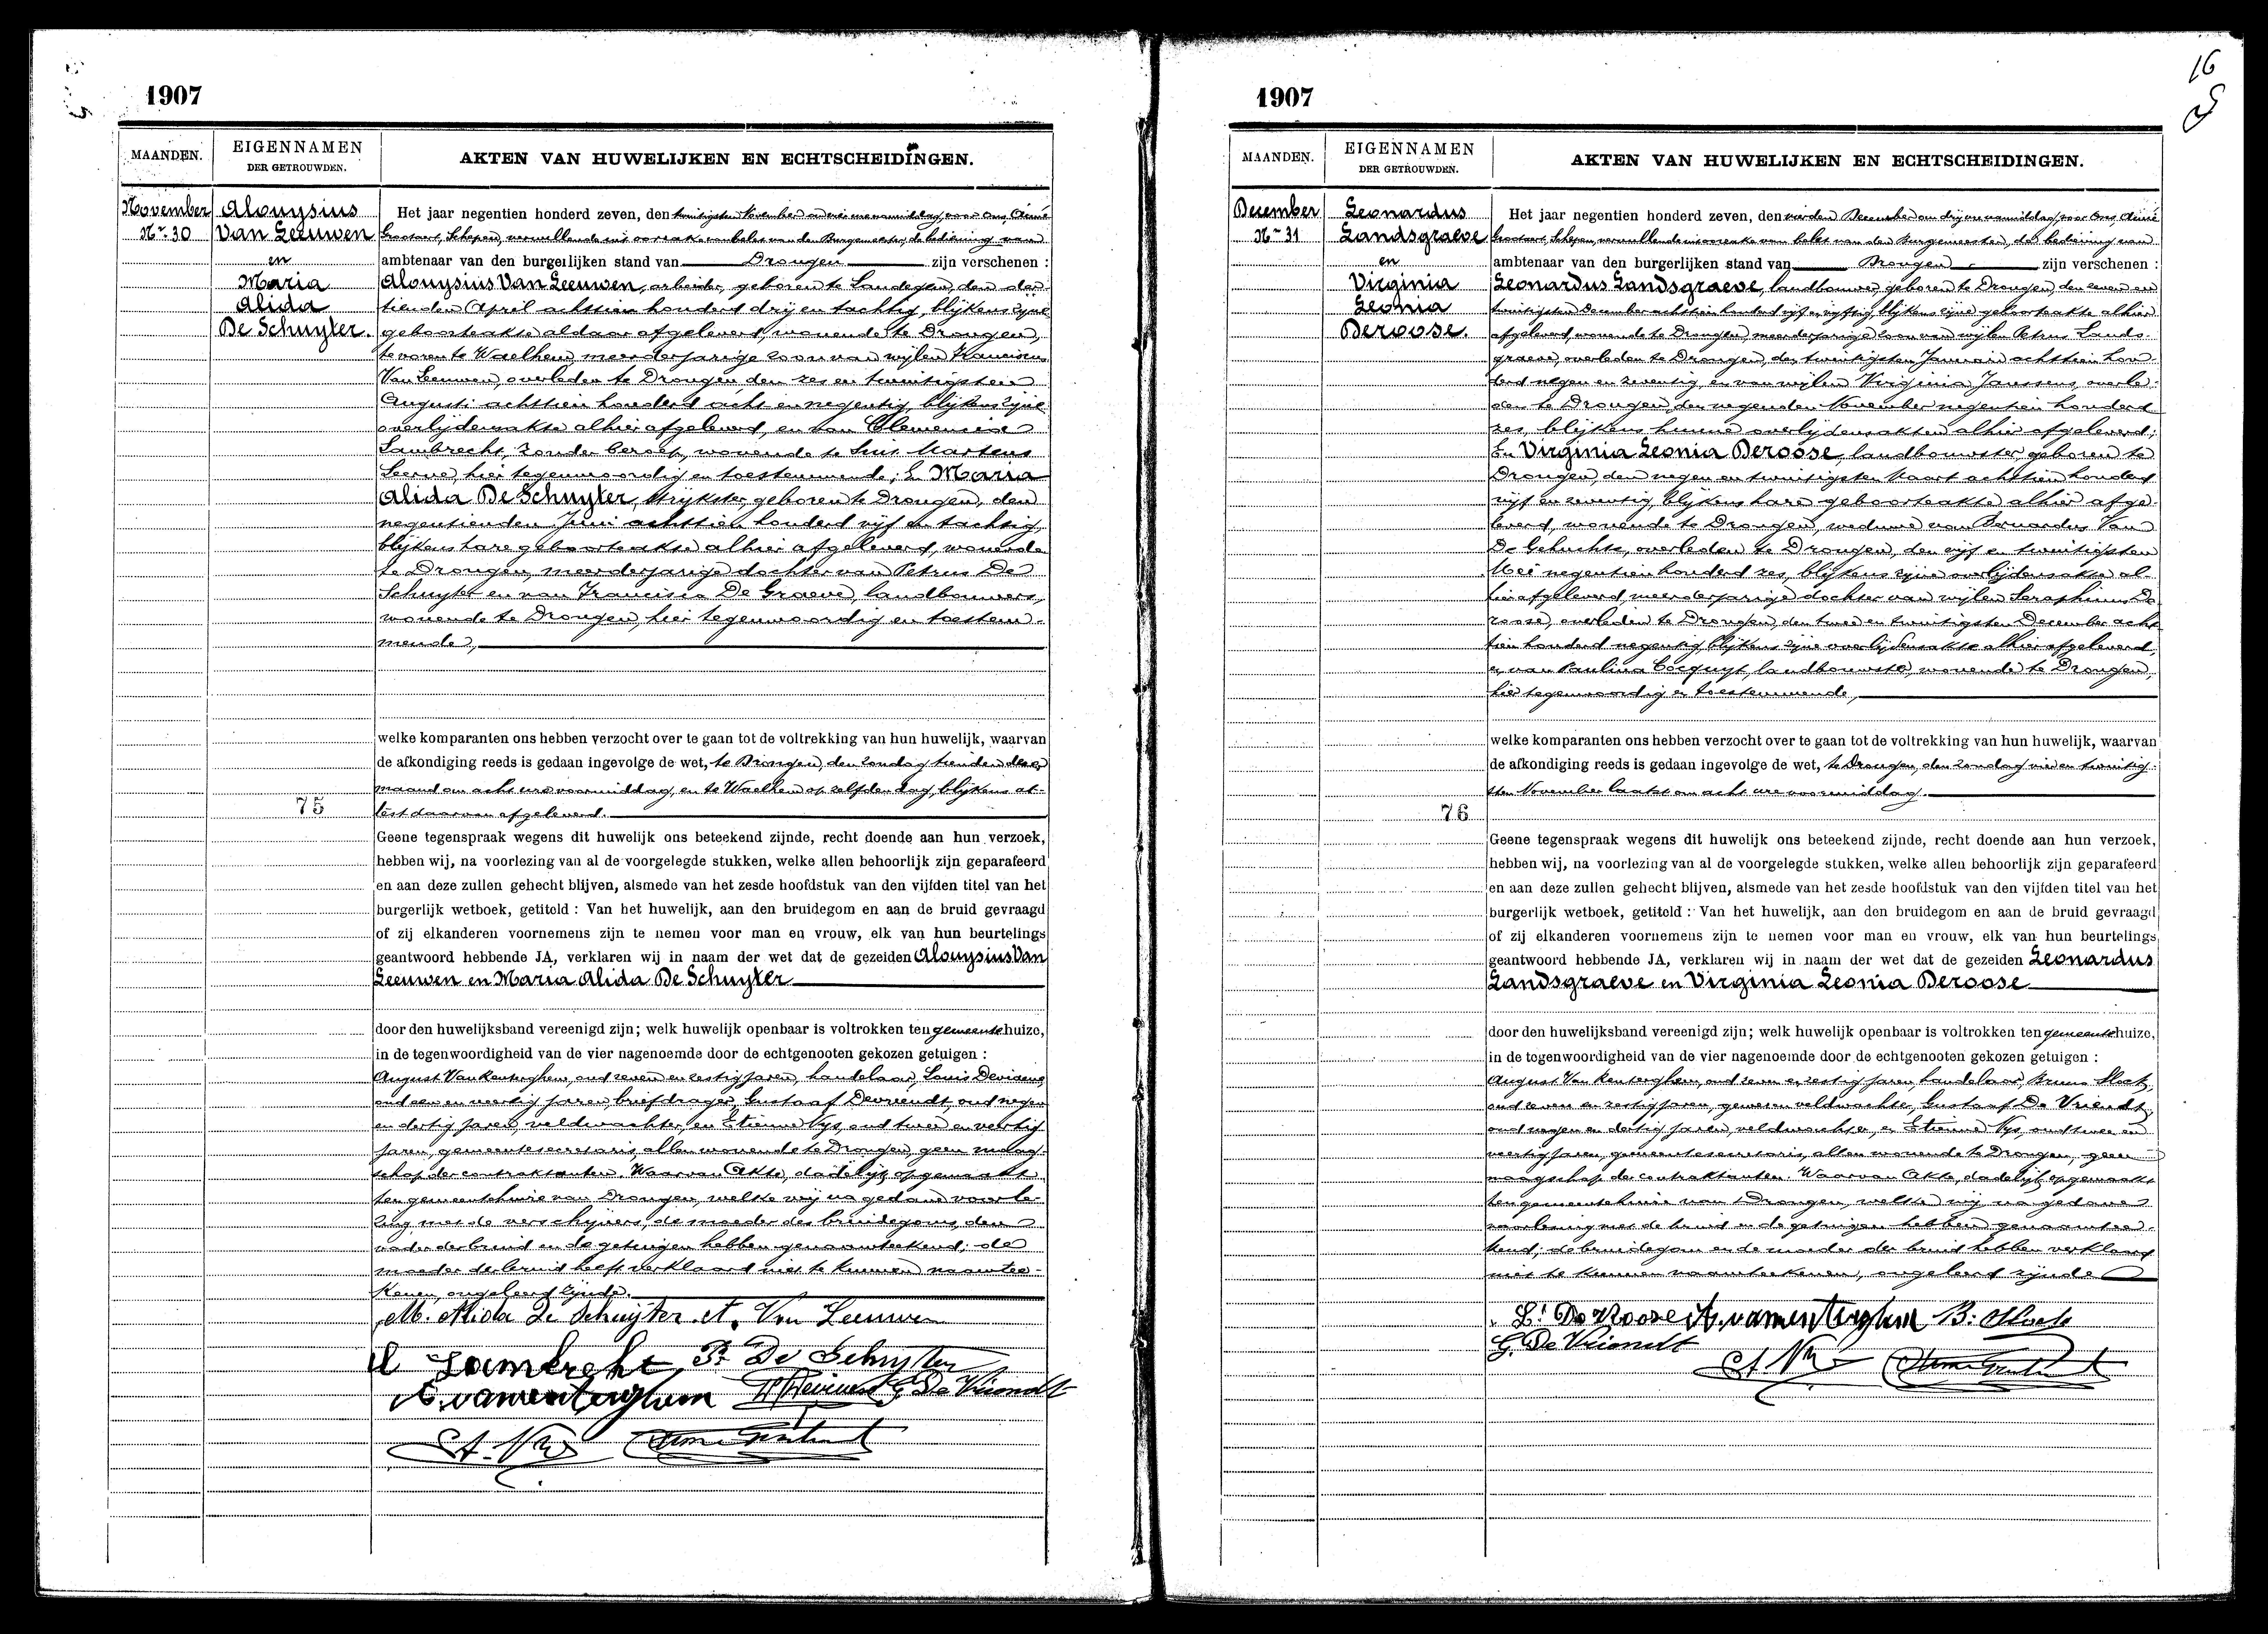 1907
MAANDEN.
EIGENNAMEN
DER GETROUWDEN.
AKTEN VAN HUWELIJKEN EN ECHTSCHEIDINGEN.
November
Nr. 30
Alouysius
Van Leeuwen
en
Maria
Alida
De Schuyter.
Het jaar negentien honderd zeven, den twintigsten November voor Ons, Aimé
Schepen, vervullende uit oorzake van belet van den Burgemeester, de bediening van
ambtenaar van den burgerlijken stand van Drongen zijn verschenen :
Aloysius Van Leeuwen, arbeider, geboren te Landegem, den
tienden April achttien honderd drij en tachtig, blijkens zijne
geboorteakte aldaar afgeleverd, wonende te Drongen,
te voren te Waelhem, meerderjarige zoon van wijlen Franciscus
Van Leeuwen, overleden te Drongen den zes en twintigsten
Augusti achttien honderd acht en negentig, blijkens zijne
overlijdensakte alhier afgeleverd, en van Clemencia
Lambrecht, zonder beroep, wonende te Sint Martens
Leerne, hier tegenwoordig en toestemmende; En Maria
Alida De Schuyter, strijkster, geboren te Drongen, den
negentienden Juni achttien honderd vijf en tachtig,
blijkens hare geboorteakte alhier afgeleverd, wonende
te Drongen, meerderjarige dochter van Petrus De
Schuyter en van Francisca De Graeve, landbouwers,
wonende te Drongen, hier tegenwoordig en toestem-
mende,
welke komparanten ons hebben verzocht over te gaan tot de voltrekking van hun huwelijk, waarvan
de afkondiging reeds is gedaan ingevolge de wet, te Drongen, den Zondag tienden dezer
maand om acht ure voormiddag, en te Waelhem op zelfden dag, blijkens at-
test daarvan afgeleverd.
75
Geene tegenspraak wegens dit huwelijk ons beteekend zijnde, recht doende aan hun verzoek,
hebben wij, na voorlezing van al de voorgelegde stukken, welke allen behoorlijk zijn geparafeerd
en aan deze zullen gehecht blijven, alsmede van het zesde hoofdstuk van den vijfden titel van het
burgerlijk wetboek, getiteld : Van het huwelijk, aan den bruidegom en aan de bruid gevraagd
of zij elkanderen voornemens zijn te nemen voor man en vrouw, elk van hun beurtelings
geantwoord hebbende JA, verklaren wij in naam der wet dat de gezeiden Alouysius Van
Leeuwen en Maria Alida De Schuyter
door den huwelijksband vereenigd zijn; welk huwelijk openbaar is voltrokken ten gemeentehuize,
in de tegenwoordigheid van de vier nagenoemde door de echtgenooten gekozen getuigen :
August Van Kenterghem, oud zeven en zestig jaren, handelaar, Louis
oud een en veertig jaren, briefdrager, Gustaaf Devriendt, oud negen
en dertig jaren, veldwachter, en Etienne Nys, oud twee en veertig
jaren, gemeentesecretaris, allen wonende te Drongen, geen maag-
schap der contraktanten. Waarvan Akte, dadelijk opgemaakt
ten gemeentehuize van Drongen, welke wij na gedane voorle-
zing met de verschijners, de moeder des bruidegoms, den
vader der bruid en de getuigen hebben genaamteekend; de
moeder der bruid heeft verklaard niet te kunnen naamtee-
kenen, ongeleerd zijnde.
M. Alida De Schuyter A. Van Leeuwen
Lambreht P. De Schuyter
A. vanrenterghem G De Vriendt
Et. Nys
16
1907
MAANDEN.
EIGENNAMEN
DER GETROUWDEN.
AKTEN VAN HUWELIJKEN EN ECHTSCHEIDINGEN.
December
Nr 31
Leonardus
Landsgraeve
en
Virginia
Leonia
Deroose.
Het jaar negentien honderd zeven, den vierden December om drij ure namiddag, voor Ons, Aimé
Schepen, vervullende uit oorzake van belet van den Burgemeester, de bediening van
ambtenaar van den burgerlijken stand van Drongen zijn verschenen :
Leonardus Landsgraeve, landbouwer, geboren te Drongen, den zeven en
twintigsten December achttien honderd vijf en vijftig, blijkens zijne geboorteakte alhier
afgeleverd, wonende te Drongen, meerderjarige zoon van wijlen Petrus Lands-
graeve, overleden te Drongen, den twintigsten Januari achttien hon-
derd negen en zeventig, en van wijlen Virginia Janssens, overle-
den te Drongen, den negenden November negentien honderd
zes, blijkens hunne overlijdensakten alhier afgeleverd;
En Virginia Leonia Deroose, landbouwster, geboren te
Drongen, den negen en twintigsten Maart achttien honderd
vijf en zeventig, blijkens hare geboorteakte alhier afge-
leverd, wonende te Drongen, weduwe van Bernardus Van
De Gehuchte, overleden te Drongen, den vijf en twintigsten
Mei negentien honderd zes, blijkens zijne overlijdensakte al-
hier afgeleverd, meerderjarige dochter van wijlen Seraphinus De-
roose, overleden te Drongen, den twee en twintigsten December acht-
tien honderd negentig, blijkens zijne overlijdensakte alhier afgeleverd,
en van Paulina Cocquyt, landbouwster, wonende te Drongen,
hier tegenwoordig en toestemmende,
welke komparanten ons hebben verzocht over te gaan tot de voltrekking van hun huwelijk, waarvan
de afkondiging reeds is gedaan ingevolge de wet, te Drongen, den Zondag vier en twintig-
sten November laatst om acht ure voormiddag.
76
Geene tegenspraak wegens dit huwelijk ons beteekend zijnde, recht doende aan hun verzoek,
hebben wij, na voorlezing van al de voorgelegde stukken, welke allen behoorlijk zijn geparafeerd
en aan deze zullen gehecht blijven, alsmede van het zesde hoofdstuk van den vijfden titel van het
burgerlijk wetboek, getiteld : Van het huwelijk, aan den bruidegom en aan de bruid gevraagd
of zij elkanderen voornemens zijn te nemen voor man en vrouw, elk van hun beurtelings
geantwoord hebbende JA, verklaren wij in naam der wet dat de gezeiden Leonardus
Landsgraeve en Virginia Leonia Deroose
door den huwelijksband vereenigd zijn; welk huwelijk openbaar is voltrokken ten gemeentehuize,
in de tegenwoordigheid van de vier nagenoemde door de echtgenooten gekozen getuigen :
August Van Kenterghem, oud zeven en zestig jaren, handelaar, Bruno
oud zeven en zestig jaren, gewezen veldwachter, Gustaaf De Vriendt,
oud negen en dertig jaren, veldwachter, en Etienne Nys, oud twee en
veertig jaren, gemeentesecretaris, allen wonende te Drongen, geen
maagschap der contraktanten. Waarvan Akte, dadelijk opgemaakt
ten gemeentehuize van Drongen, welke wij na gedane
voorlezing met de bruid en de getuigen hebben genaamtee-
kend; de bruidegom en de moeder der bruid hebben verklaard
niet te kunnen naamteekenen, ongeleerd zijnde
L. De Roose A. vanrenterghem B.
G. De Vriendt
Et. Nys